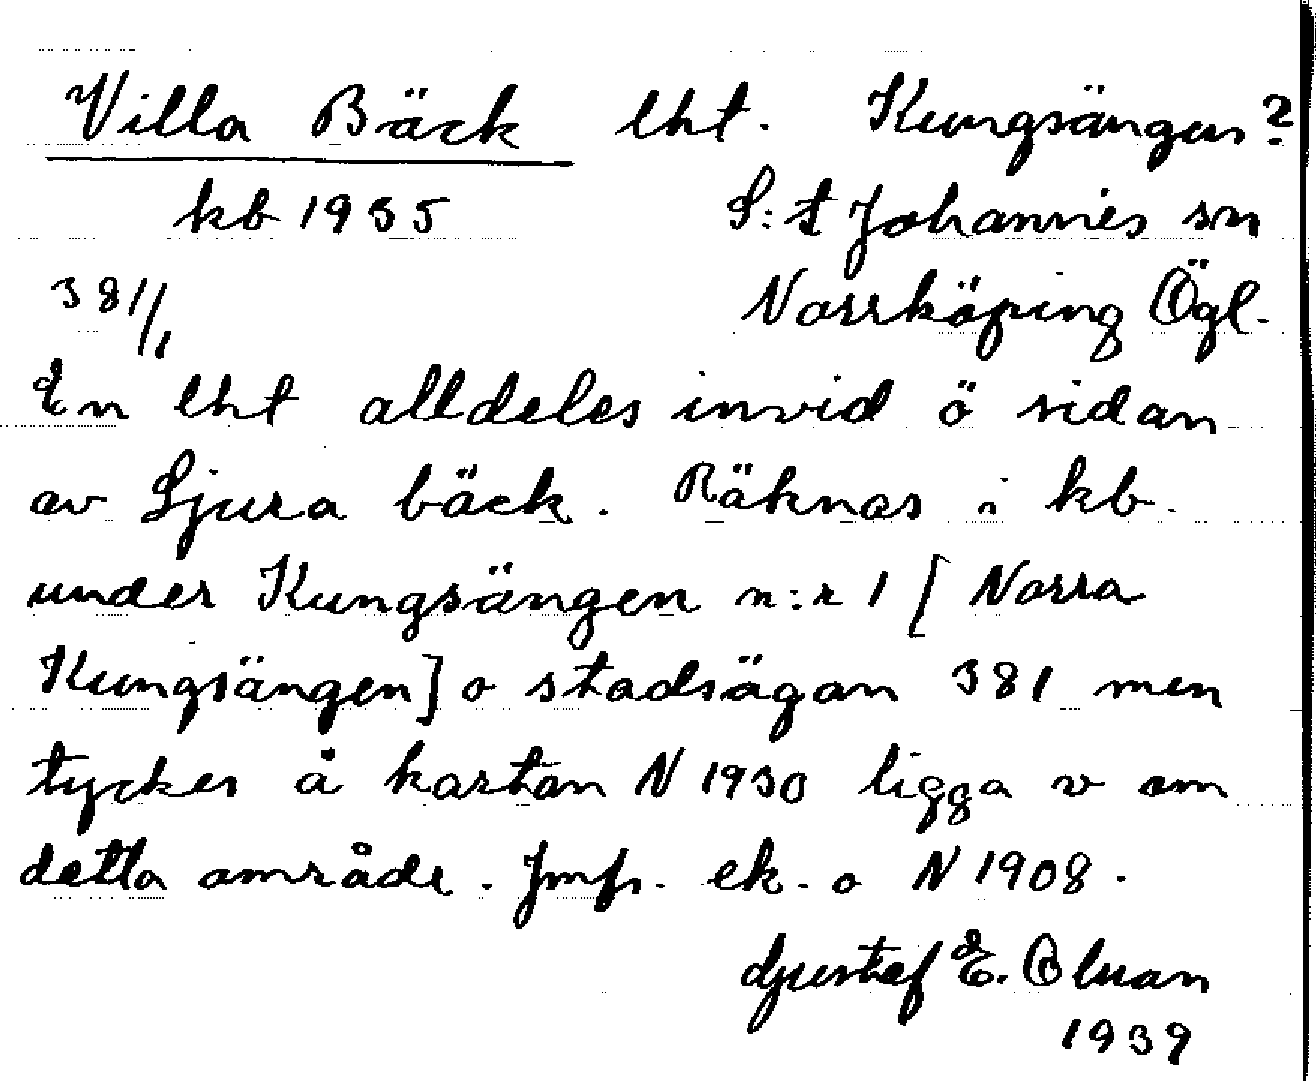 Villa Bäck lht. Kungsängen?
kb 1935 S:t Johannes sn
381/1 Norrköping Ögl.
En lht alldeles invid ö sidan
av Ljura bäck. Räknas i kb.
under Kungsängen n:r 1 [Norra
Kungsängen] o stadsägan 381 men
tyckes å kartan N 1930 ligga v om
detta område. Jmfr. ek. o N 1908.
Gustaf E. Olsson
1939